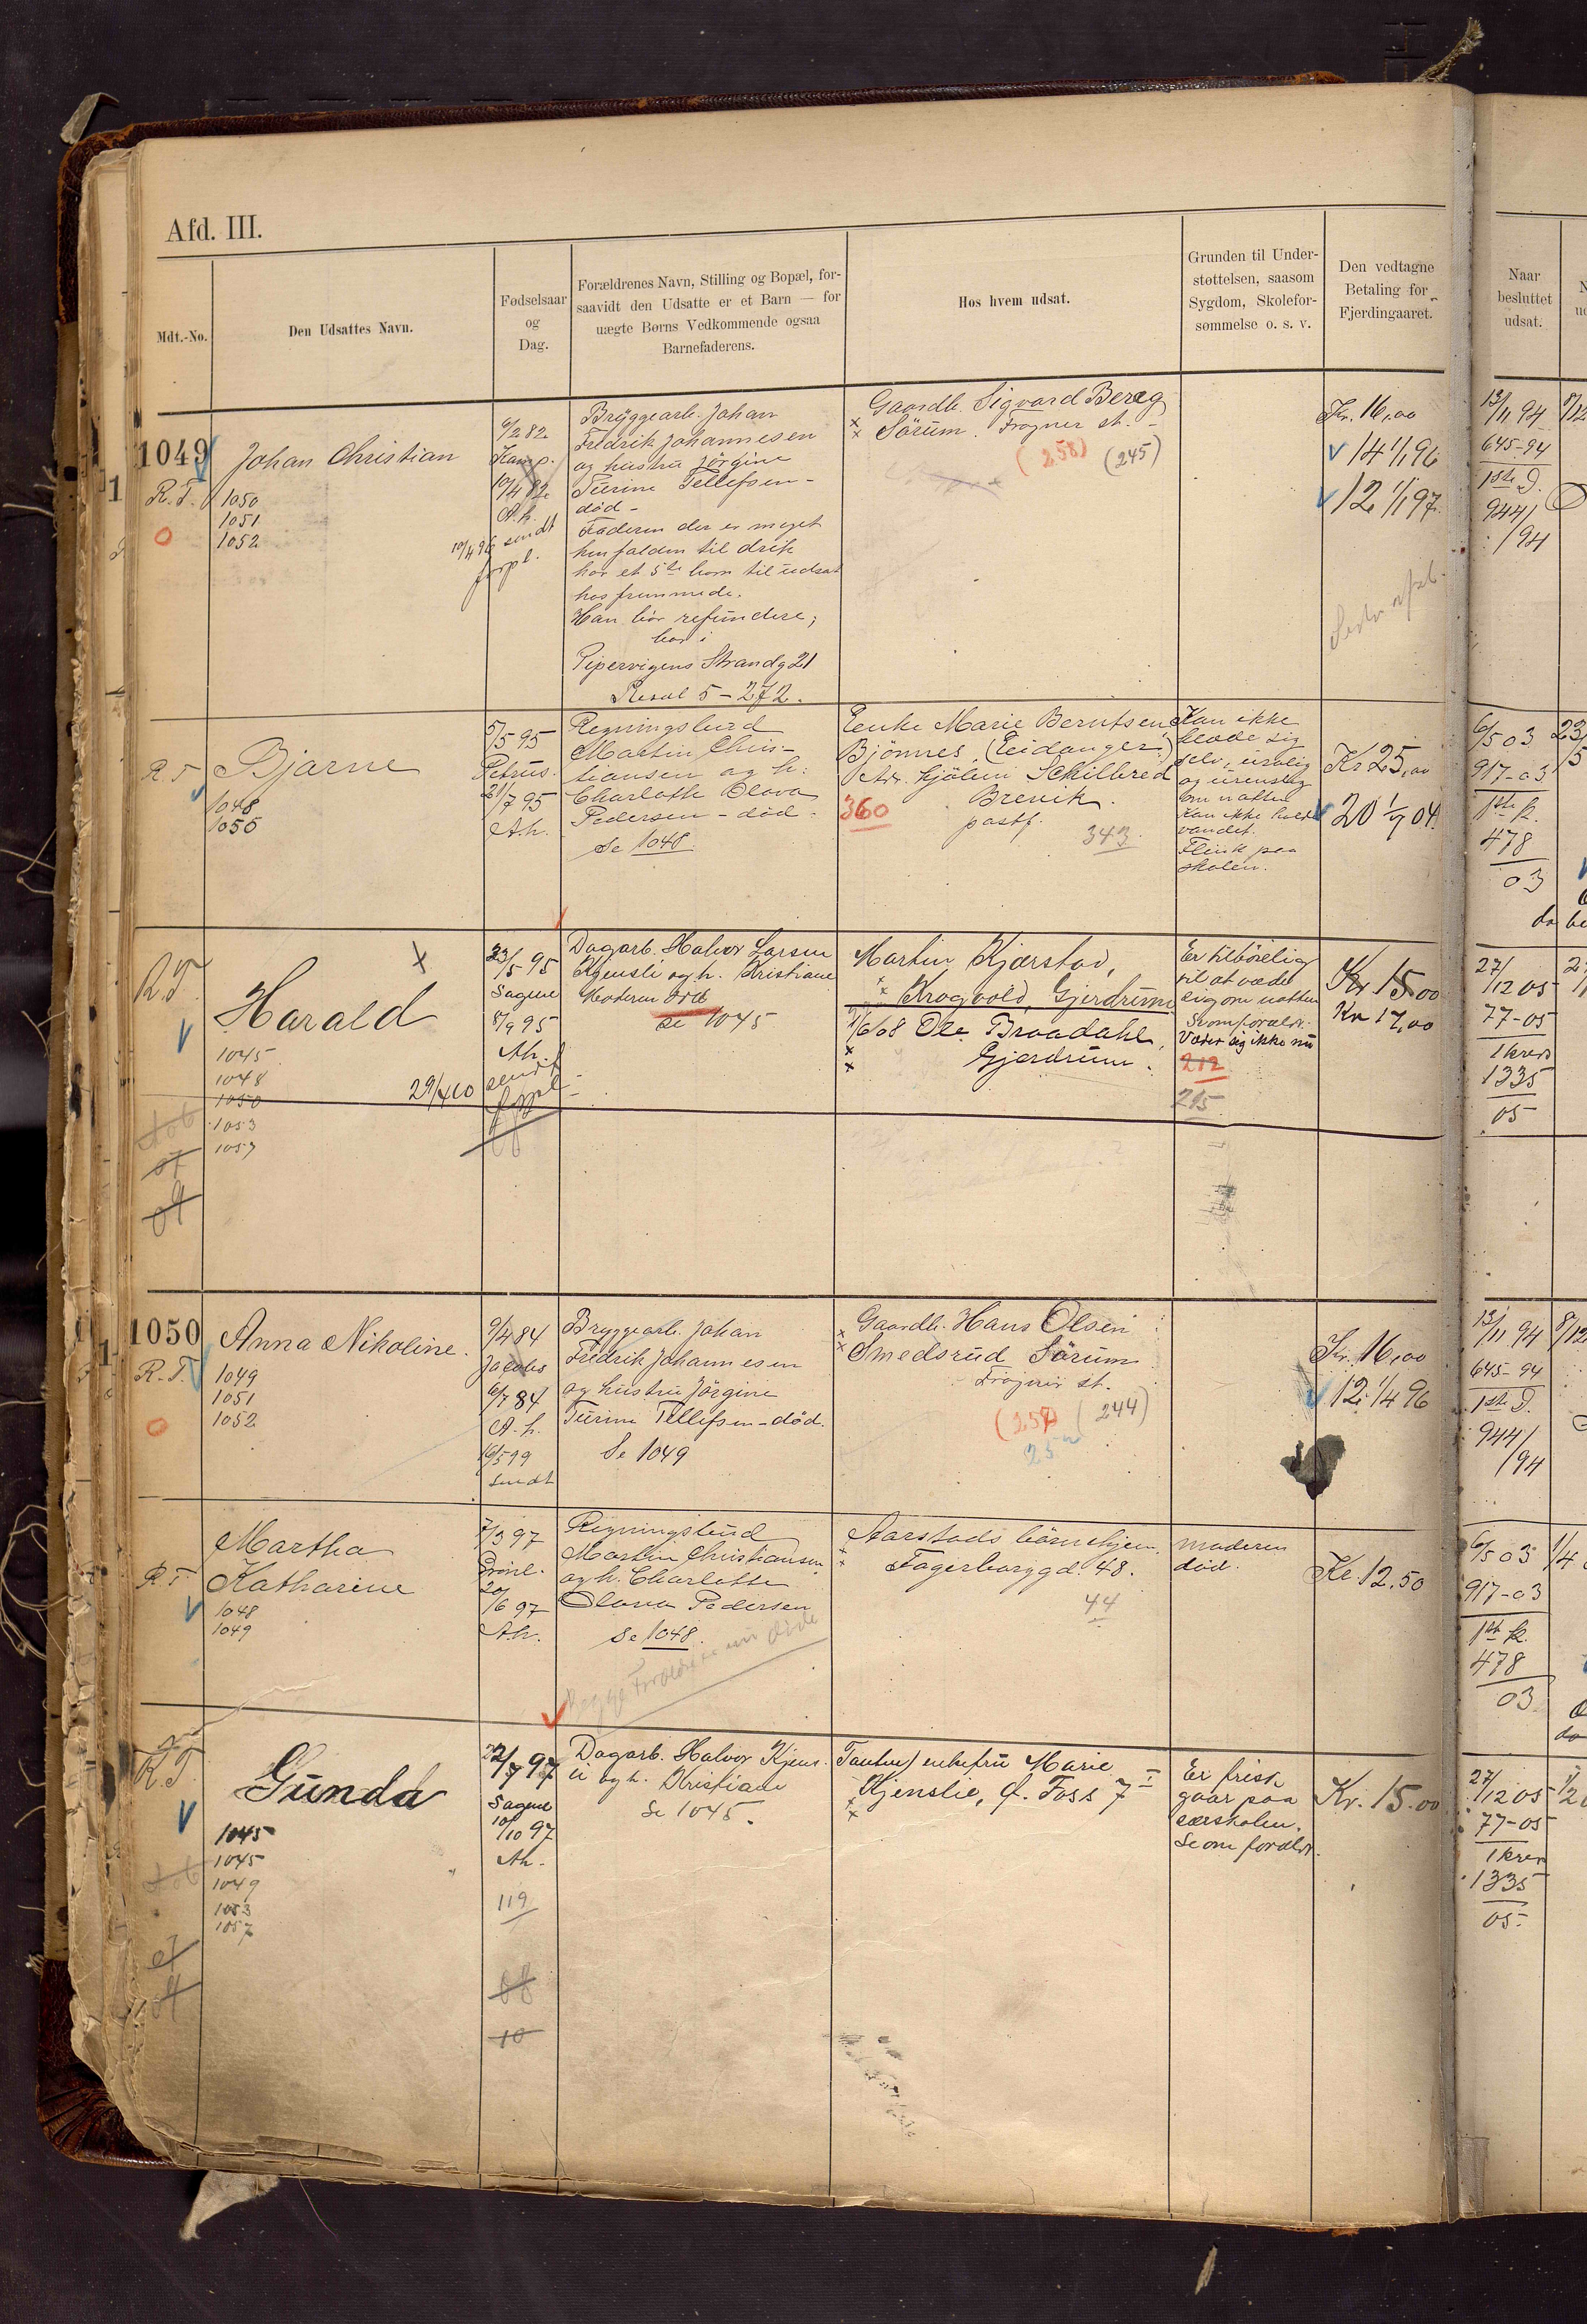 Afd. III.
Mdt.-No.
Den Udsattes Navn.
Fødselsaar
og
Dag.
Forældrenes Navn, Stilling og Bopæl, for-
saavidt den Udsatte er et Barn — for
uægte Børns Vedkommende ogsaa
Barnefaderens.
Hos hvem udsat.
Grunden til Under-
støttelsen, saasom
Sygdom, Skolefor-
sømmelse o. s. v.
Den vedtagne
Betaling for
Fjerdingaaret.
Naar
besluttet
udsat.
1049
R.T.
Johan Christian
1050
1051
1052
6/2 82
Kamp.
10/4 82
A.h.
10/4 96 sendt
forpl.
Bryggearb. Johan
Fredrik Johannesen
og hustru Jörgine
Turine Tellefsen -
död -
Faderen der er meget
henfalden til drik
har et 5te barn til udsat
hos fremmede.
Han bör refundere;
bor i
Pipervigens Strandg 21
Resol 5 - 272.
Gaardb. Sigvard Berg
Sörum. Frogner st. -
(258)
(245)
Kr. 16,00
14 1/1 96
12 1/1 97.
13/11 94
645-94
1ste D.
944/
/94
R.T.
Bjarne
1048
1050
5/5 95
Petrus.
21/7 95
A.h.
Regningsbud
Martin Chris-
tiansen og h.
Charlotte Olava
Pedersen - död.
Se 1048.
Enke Marie Berntsen
Bjönnes, (Eidanger)
Adr. Hjölun Schilbred
Brevik.
360
postf.
343.
Kan ikke
klæde sig
selv, urolig
og urenslig
om natten
Kan ikke holde
vandet.
Flink paa
skolen.
Kr 25,00
20 1/7 04.
6/5 03
917-03
1ste k.
478
03
R.T.
Harald
1045
1048
1050
1053
1057
23/5 95
Sagene
8/9 95
Ah.
29/4 10 sendt
forpl.
Dagarb. Halvor Larsen
Kjensli og h. Kristiane
Moderen död
se 1045
Martin Kjærstad,
Krogvold, Gjerdrum
1/6 08 Ole Braadahl,
Gjerdrum.
Er tilböielig
til at væde
sig om natten
Se om forældr.
Væder sig ikke nu
212
215
Kr 15.00
Kr 17,00
27/12 05
77-05
1 kreds
1335
05
1050
R.T.
Anna Nikoline.
1049
1051
1052
9/4 84
Jacobs
6/7 84
A.h.
16/5 99
sendt
Bryggearb. Johan
Fredrik Johannesen
og hustru Jörgine
Turine Tellefsen - död.
Se 1049
Gaardb. Hans Olsen
Smedsrud Sörum
Frogner st.
(257)
(244)
Kr. 16,00
12. 1/4 96
13/11 94
645-94
1ste D.
944/
/94
R.T.
Martha
Katharine
1048
1049
7/3 97
20/6 97
A.h.
Regningsbud
Martin Christiansen
og h. Charlotte
Olava Pedersen
Se 1048.
Begge Forældre er nu döde
Aarstads börnehjem.
Fagerborggd. 48.
44
moderen
död.
Kr. 12,50
6/5 03
917-03
1ste k.
478
03
R.T.
Gunda
1045
1045
1049
1053
1057
22/7 97
Sagene
10/10 97
Ah.
119
08
10
Dagarb. Halvor Kjens-
li og h. Kristiane
Se 1045.
Tanten) enkefru Marie
Kjenslie, Ø. Foss 7 I
Er frisk
gaar paa
særskolen.
Se om forældr.
Kr. 15.00
27/12 05
77-05
1 kreds
1335
05